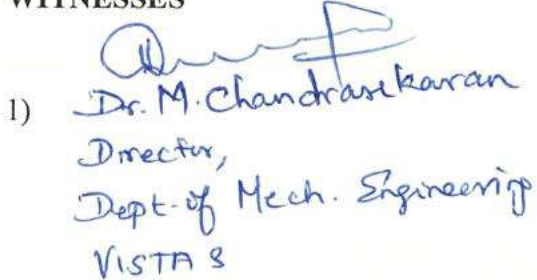 WITNESSES
1) Dr. M. Chandrasekaran
Director,
Dept. of Mech. Engineering
VISTAS